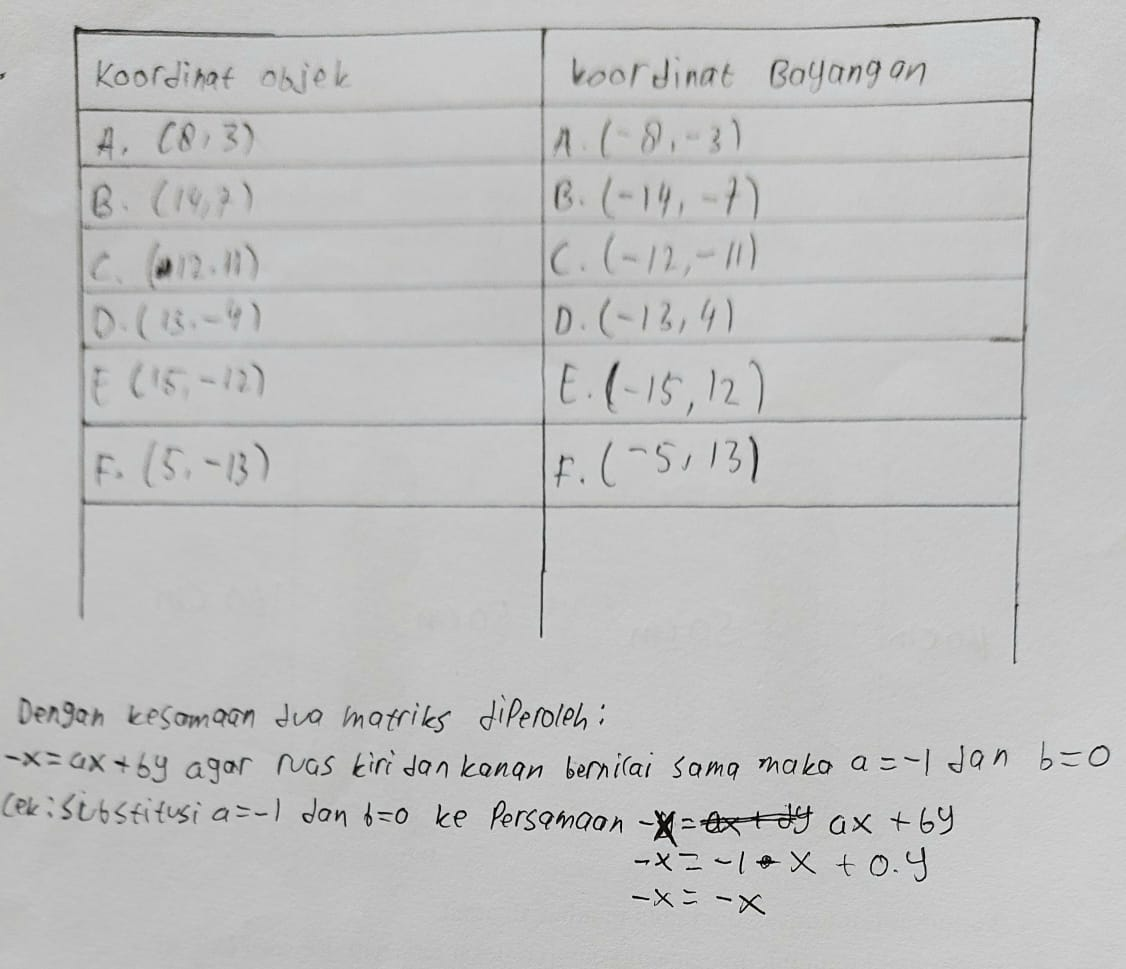 Koordinat objek koordinat Bayangan
A. (8,3) A. (-8,-3)
B. (14,7) B. (-14, -7)
C. (12.11) C. (-12,-11)
D. (13.-4) D. (-13,4)
E (15,-12) E. (-15,12)
F. (5.-13) F. (-5,13)
Dengan kesamaan dua matriks diperoleh:
-x=ax+by agar ruas kiri dan kanan bernilai sama maka a=-1 dan b=0
Cek: Substitusi a=-1 dan b=0 ke Persamaan -x= ax + by
-x=-1 • x + 0.y
-x=-x